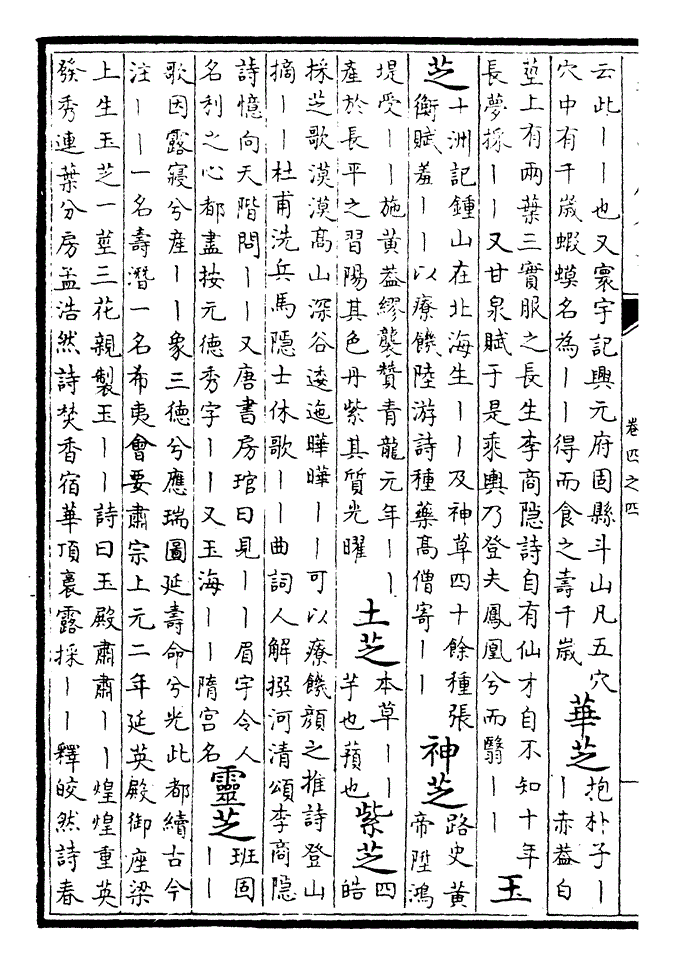 云此丨丨也又寰宇記興元府固縣斗山凡五穴
穴中有千歲蝦蟆名為丨丨得而食之壽千歲
華芝
抱朴子丨
丨赤葢白
莖上有兩葉三實服之長生李商隱詩自有仙才自不知十年
長夢採丨丨又甘泉賦于是乘輿乃登夫鳳凰兮而翳丨丨
玉
芝
十洲記鍾山在北海生丨丨及神草四十餘種張
衡賦羞丨丨以療饑陸游詩種藥高僧寄丨丨
神芝
路史黃
帝陞鴻
堤受丨丨施黃葢繆襲贊青龍元年丨丨
產於長平之習陽其色丹紫其質光曜
土芝
本草丨丨
芋也蘋也
紫芝
四
皓
採芝歌漠漠高山深谷逶迤曄曄丨丨可以療饑顔之推詩登山
摘丨丨杜甫洗兵馬隱士休歌丨丨曲詞人解撰河清頌李商隱
詩憶向天階問丨丨又唐書房琯曰見丨丨眉宇令人
名利之心都盡按元德秀字丨丨又玉海丨丨隋宮名
靈芝
班固
丨丨
歌因露寢兮產丨丨象三德兮應瑞圖延壽命兮光此都續古今
注丨丨一名壽潛一名希夷會要肅宗上元二年延英殿御座梁
上生玉芝一莖三花親製玉丨丨詩曰玉殿肅肅丨丨煌煌重英
發秀連葉分房孟浩然詩焚香宿華頂裛露採丨丨釋皎然詩春
卷四之四